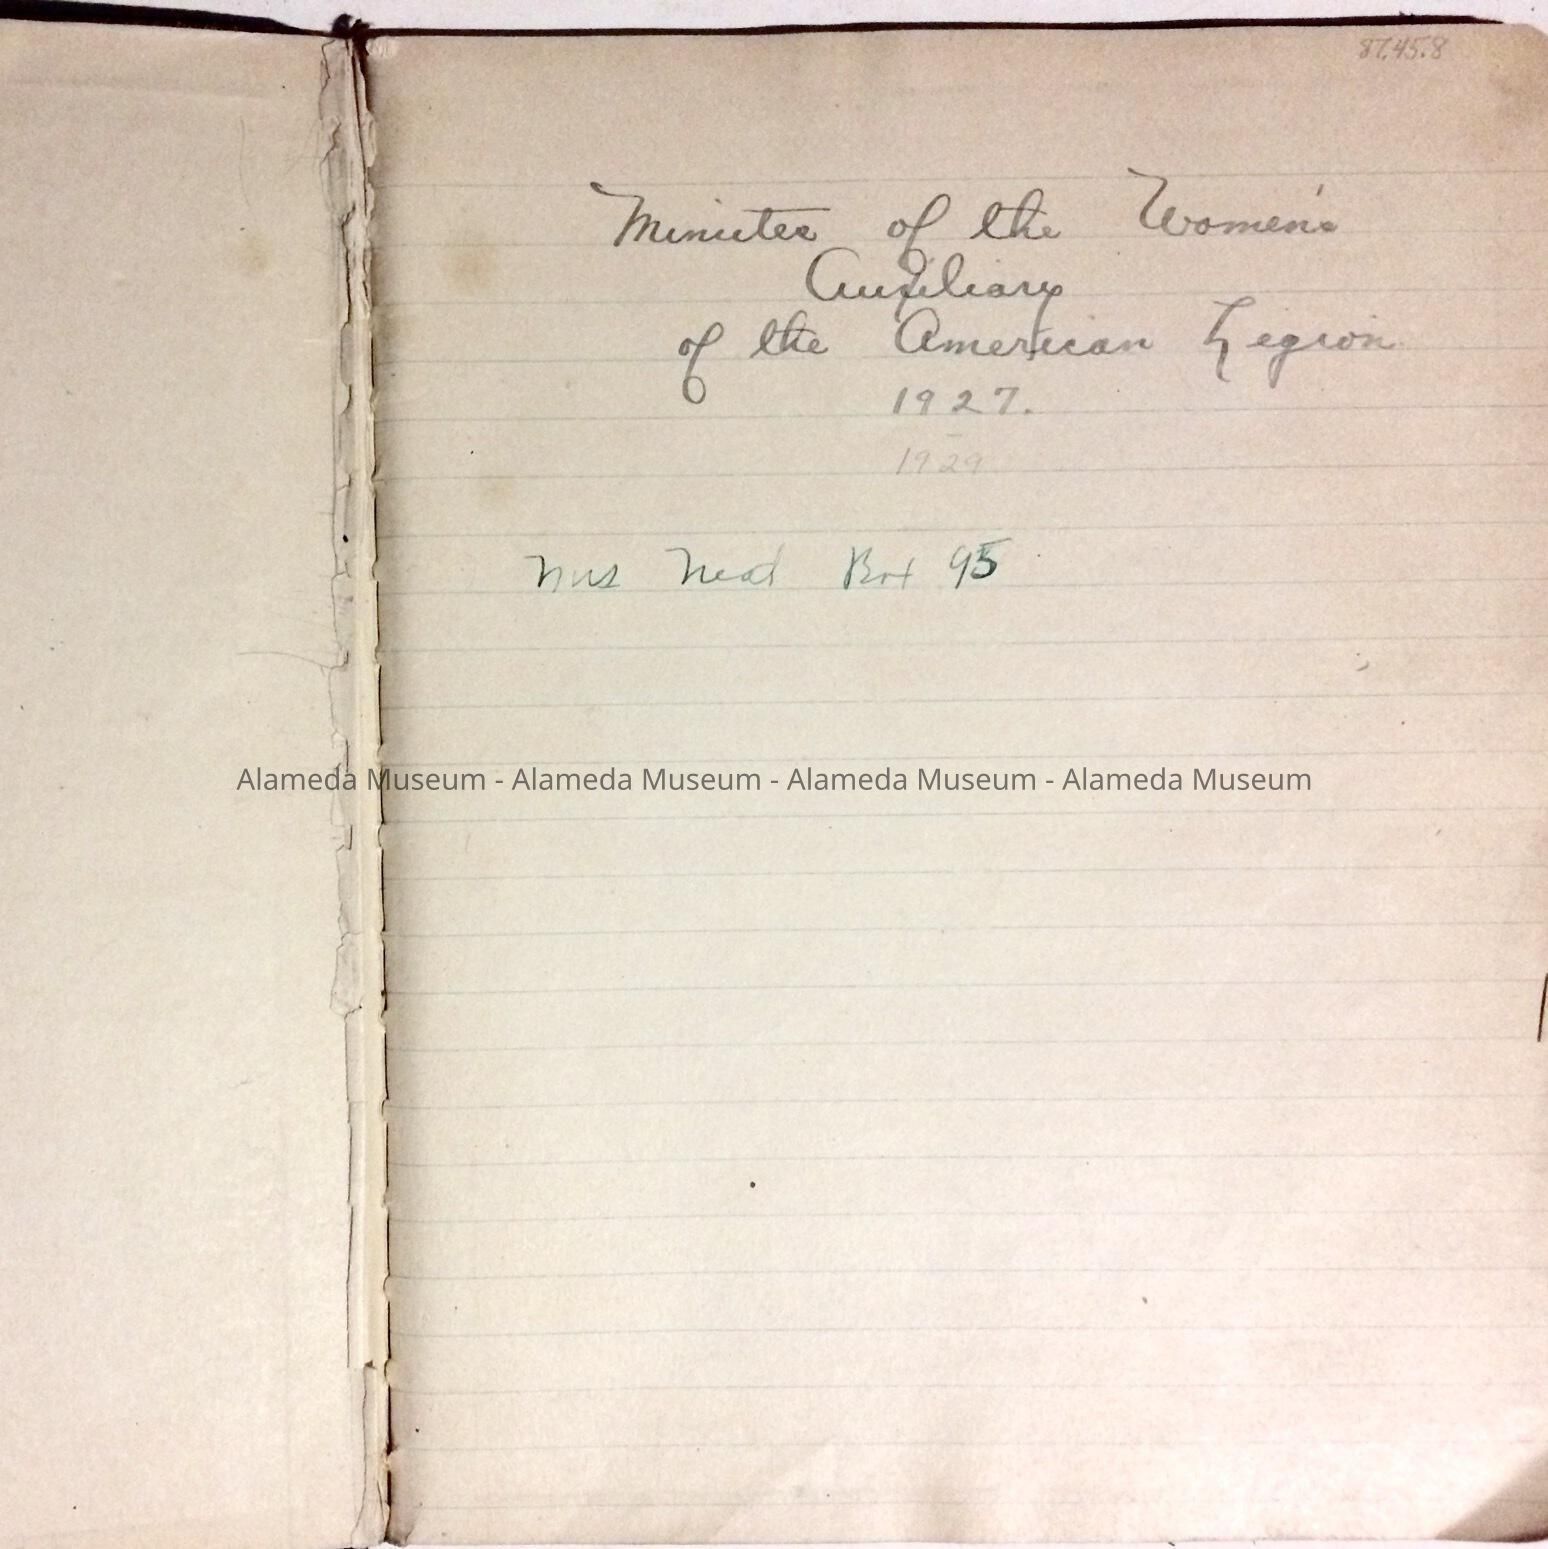 87.45.8
Minutes of the Women's
Auxiliary
of the American Legion
1927.
1929
Box 95
Alameda Museum - Alameda Museum - Alameda Museum - Alameda Museum